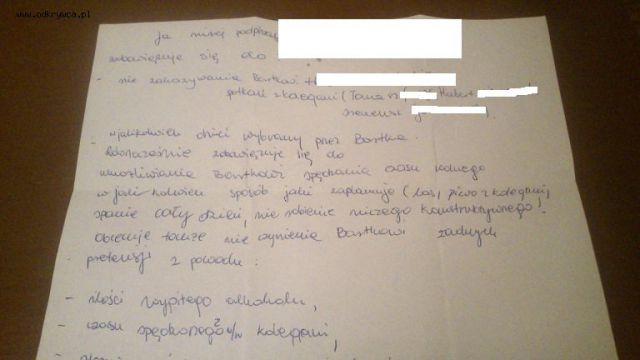 www.odkrywca.pl
ja niżej podpisana
zobowiązuje się do
- nie zakazywania Bartkowi
spotkań z kolegami (Tomasz Hubert
Ireneusz
- w jakikolwiek dzień wybrany przez Bartka.
Równocześnie zobowiązuje się do
umożliwiania Bartkowi spędzania czasu wolnego
w jaki kolwiek sposób jaki zaplanuje (las, piwo z kolegami,
spanie cały dzień, nie robienie niczego konstruktywnego!
Obiecuje także nie czynienia Bartkowi żadnych
pretensji z powodu:
- ilości wypitego alkoholu,
- czasu spędzonego z kolegami,